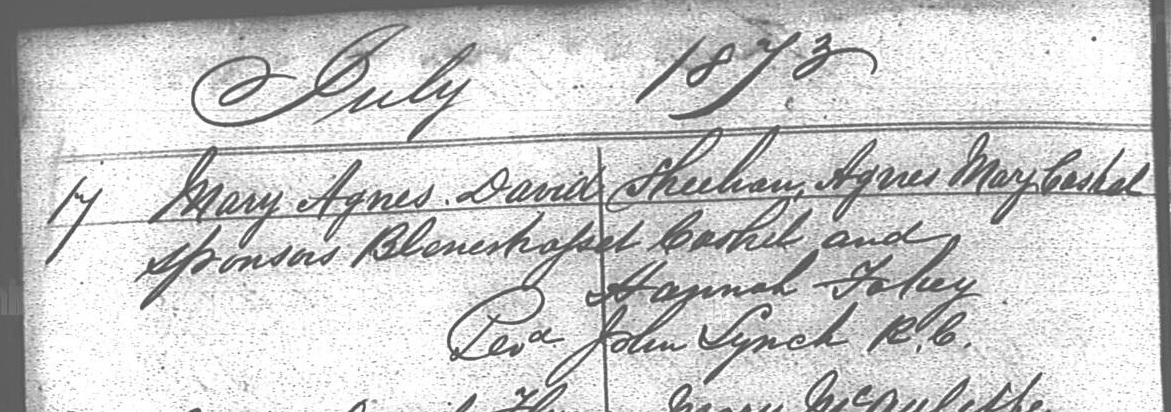 July 1873
17 Mary Agnes. David Sheehan, Agnes Mary Cashel
Sponsors Blenerhasset Cashel and
Hannah Fahey
Revd John Lynch R.C.
Mary McAuliffe